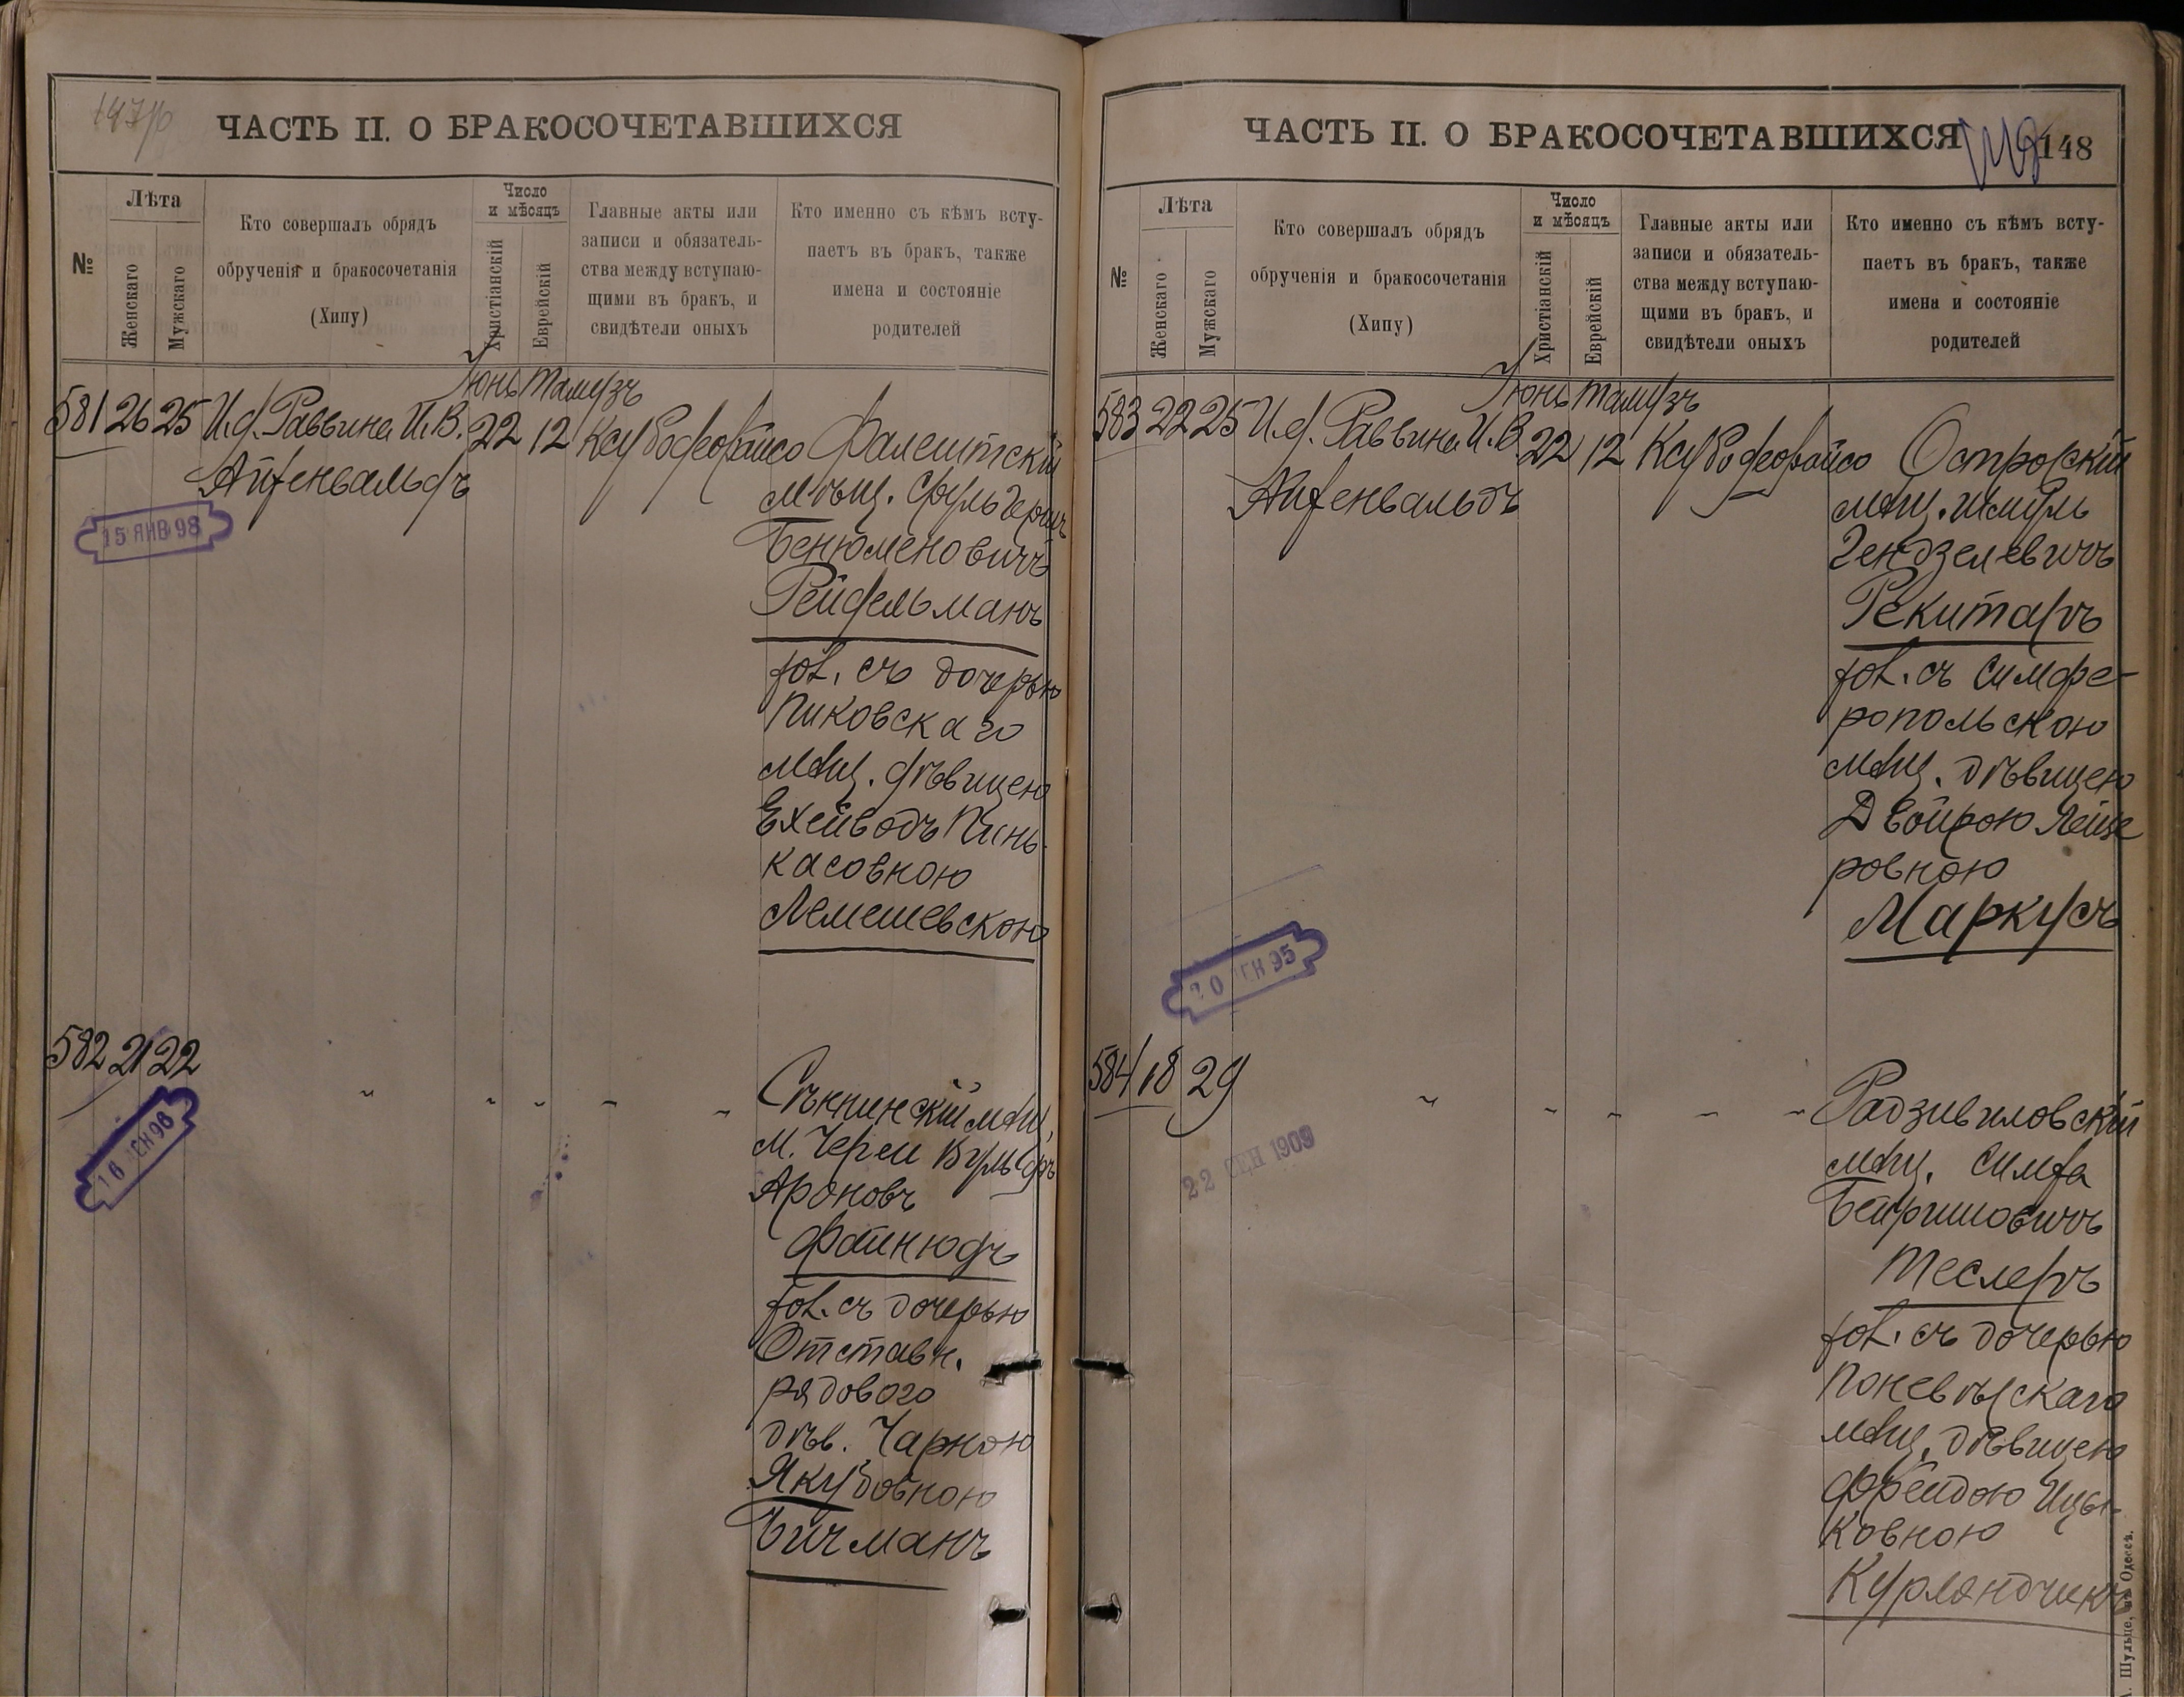 147об
ЧАСТЬ II. О БРАКОСОЧЕТАВШИХСЯ
№
Лѣта
Женскаго
Мужскаго
Кто совершалъ обрядъ
обрученія и бракосочетанія
(Хипу)
Число
и мѣсяцъ
Христіанскій
Еврейскій
Главные акты или
записи и обязатель-
ства между вступаю-
щими въ бракъ, и
свидѣтели оныхъ
Кто именно съ кѣмъ всту-
паетъ въ бракъ, также
имена и состояніе
родителей
Іюнь Тамузъ
581 26 25 И.д. Раввина И.В. 22 12 Фалештскій
Айзенвальдъ
мѣщ.
15 ЯНВ 98
Бенюменовичъ
Рейдельманъ
хол. съ дочерью
Пиковскаго
мѣщ. дѣвицею
Ехейводъ Пинь-
касовною
Лемешевскою
582 21 22
16 СЕН 96
Сѣннинскій мѣщ.
Ароновъ
Файнюдъ
хол. съ дочерью
Отставн.
рядового
дѣв. Чарною
Якубовною
Бичманъ
ЧАСТЬ II. О БРАКОСОЧЕТАВШИХСЯ
148
№
Лѣта
Женскаго
Мужскаго
Кто совершалъ обрядъ
обрученія и бракосочетанія
(Хипу)
Число
и мѣсяцъ
Христіанскій
Еврейскій
Главные акты или
записи и обязатель-
ства между вступаю-
щими въ бракъ, и
свидѣтели оныхъ
Кто именно съ кѣмъ всту-
паетъ въ бракъ, также
имена и состояніе
родителей
Іюнь Тамузъ
583 22 25 И.д. Раввина И.В. 22 12 Острожскій
Айзенвальдъ
мѣщ. Шмуль
Гендзелевичъ
Рекитаръ
хол. съ Симфе-
ропольскою
мѣщ. дѣвицею
Двойрою Лейзе
ровною
Маркусъ
584 18 29
22 СЕН 1909
Радзивиловскій
мѣщ. Симха
Бейришовичъ
Теслеръ
хол. съ дочерью
Поневѣжскаго
мѣщ. дѣвицею
Фрейдою Ицы-
ковною
Курландчикъ
Шульце, въ Одессѣ.